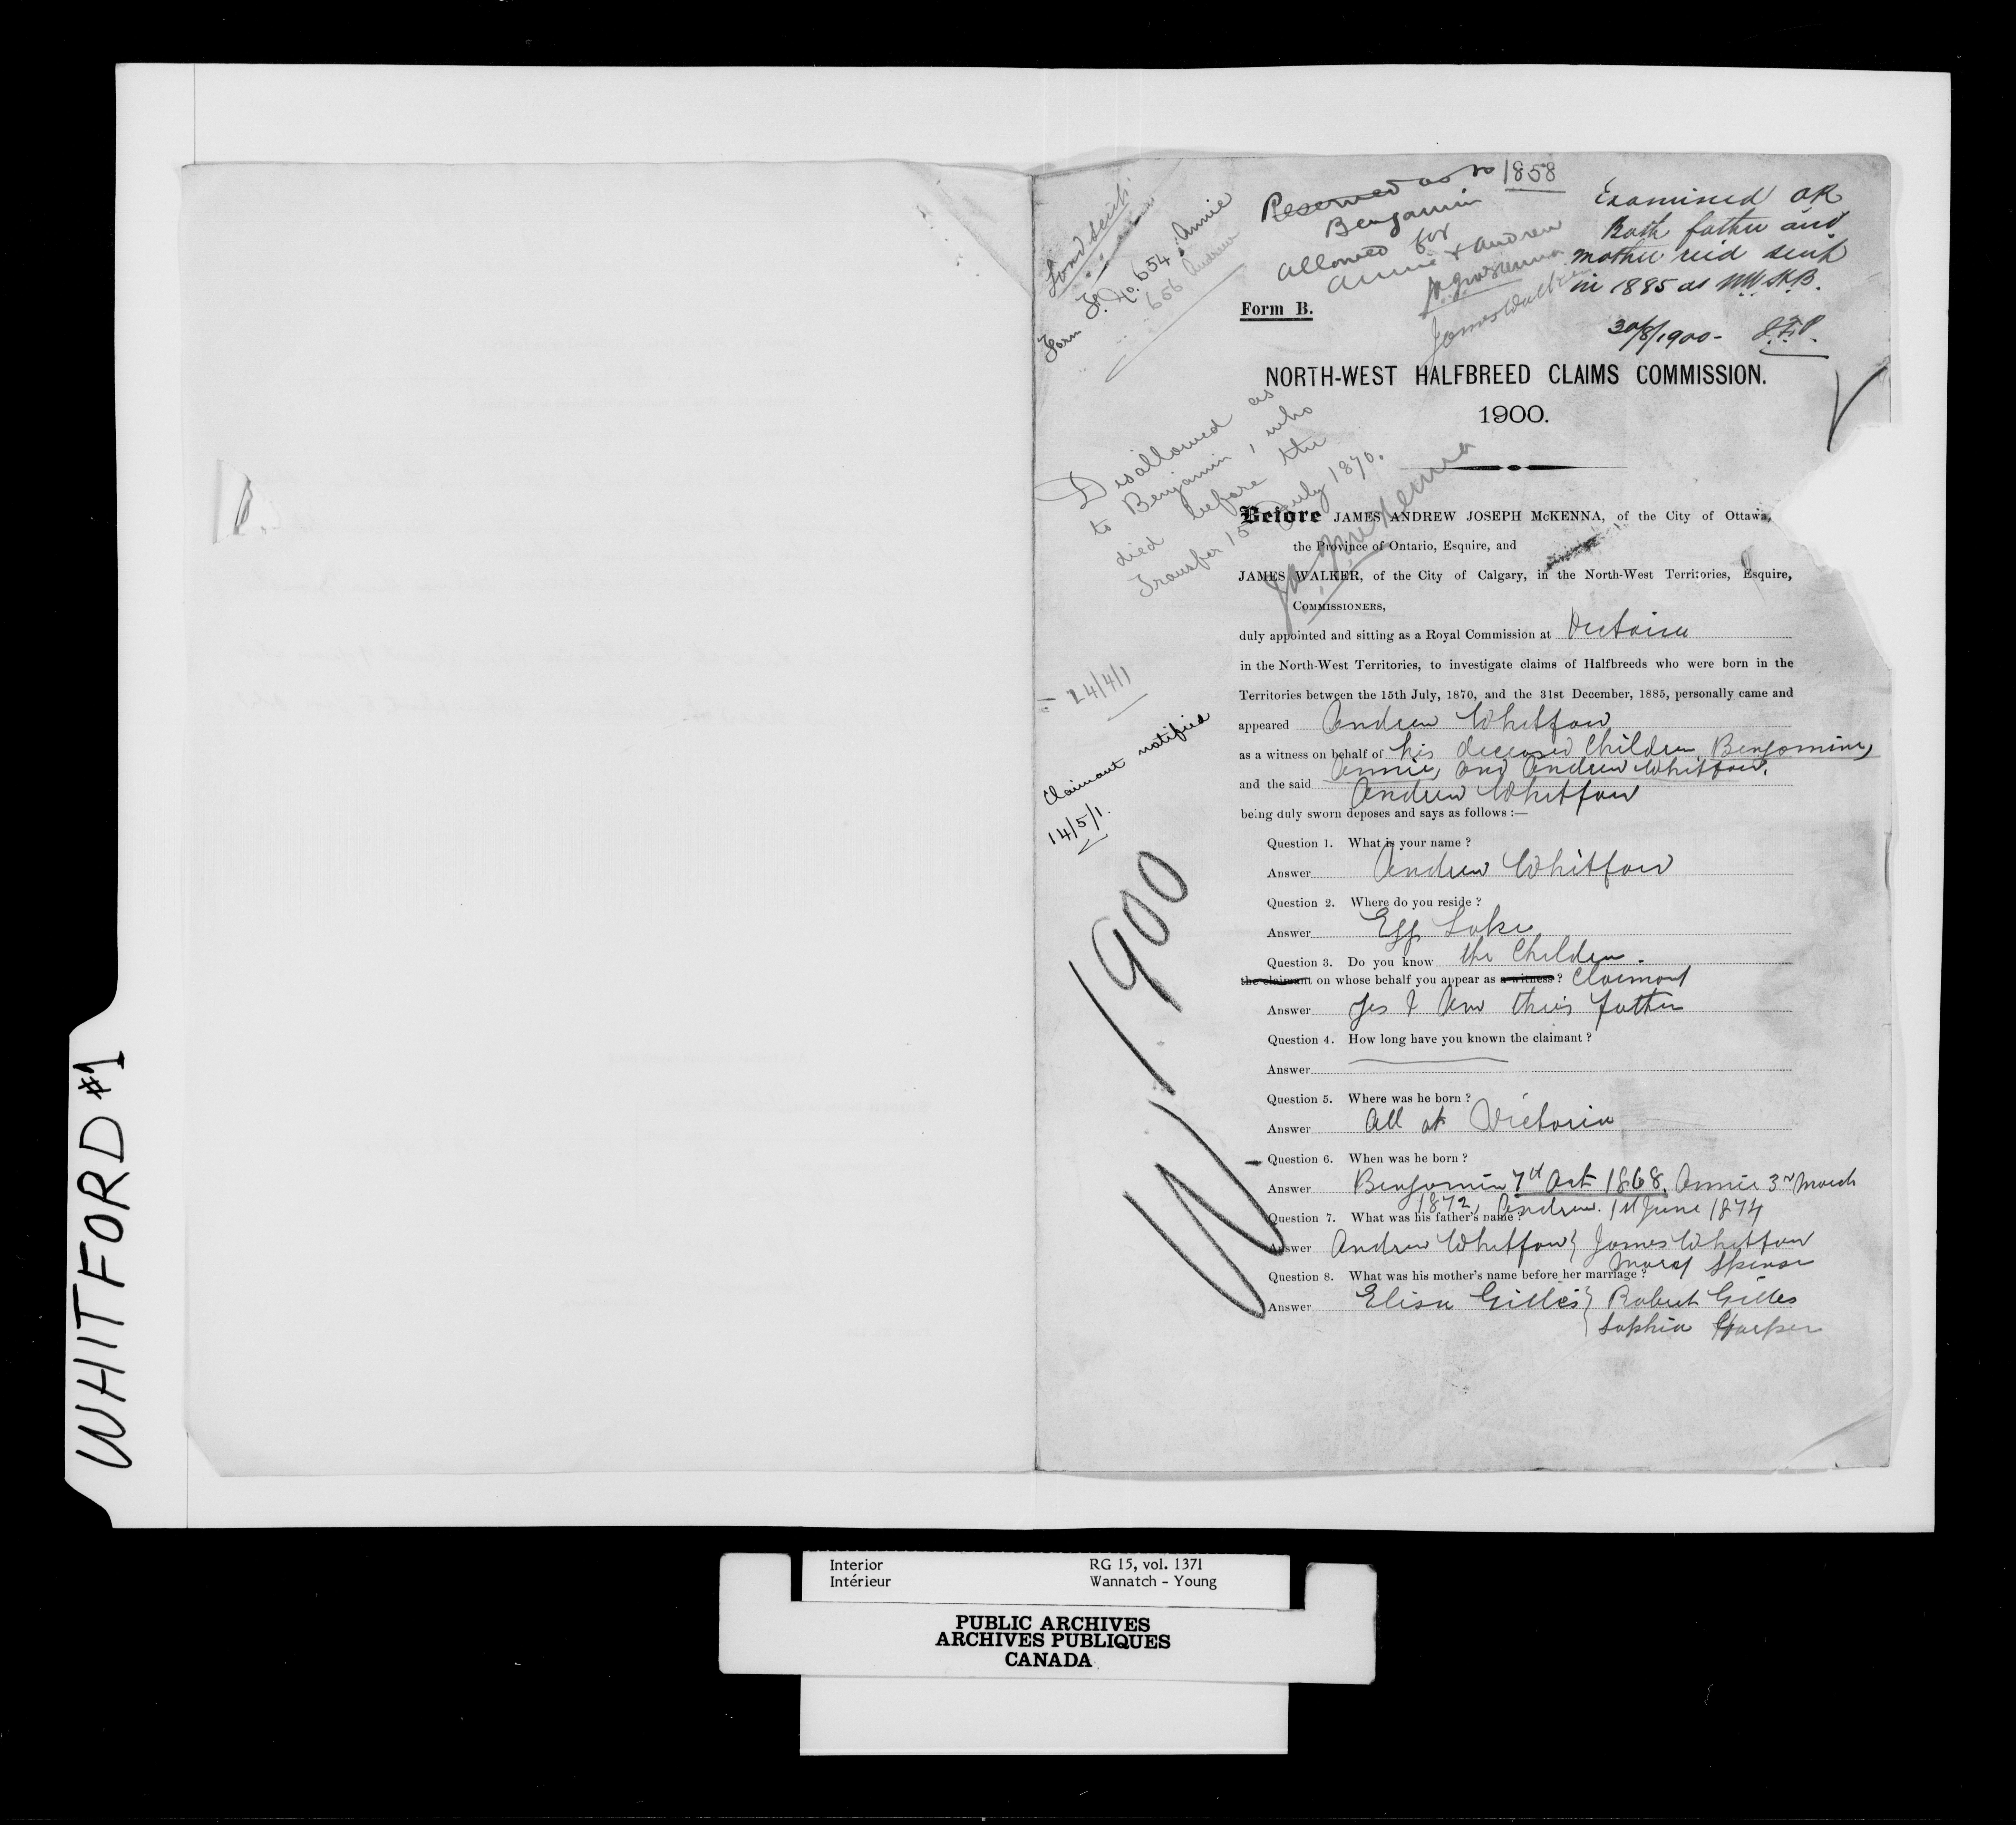 WHITFORD #1
Land Scrip
Form F. No. 654, Annie
656 Andrew
Reserved as to 1858
Benjamin
allowed for
Annie & Andrew
J.A.J. McKenna
James Walker
Examined OK
Both father and
mother rec'd scrip
in 1885 as NWHB.
30/8/1900 -
Form B.
NORTH-WEST HALFBREED CLAIMS COMMISSION.
1900.
Disallowed as
to Benjamin, who
died before the
Transfer 15 July 1870.
J.A.J. McKenna
Before JAMES ANDREW JOSEPH McKENNA, of the City of Ottawa,
the Province of Ontario, Esquire, and
JAMES WALKER, of the City of Calgary, in the North-West Territories, Esquire,
COMMISSIONERS,
duly appointed and sitting as a Royal Commission at Victoria
in the North-West Territories, to investigate claims of Halfbreeds who were born in the
Territories between the 15th July, 1870, and the 31st December, 1885, personally came and
appeared Andrew Whitford
as a witness on behalf of his deceased Children, Benjamine,
Annie, and Andrew Whitford.
and the said Andrew Whitford
being duly sworn deposes and says as follows :—
24/4/1
Claimant notified
14/5/1.
W 1900
Question 1. What is your name ?
Answer Andrew Whitford
Question 2. Where do you reside ?
Answer Egg Lake
Question 3. Do you know the Children.
the claimant on whose behalf you appear as a witness ? Claimant
Answer Yes I Am their father
Question 4. How long have you known the claimant ?
Answer
Question 5. Where was he born ?
Answer All at Victoria
Question 6. When was he born ?
Answer Benjamin 7th Oct 1868. Annie 3rd March
1872, Andrew. 1st June 1874
Question 7. What was his father's name ?
Answer Andrew Whitford } James Whitford
Mary Spence
Question 8. What was his mother's name before her marriage ?
Answer Elisa Gilles } Robert Gilles
Sophia Harper
Interior RG 15, vol. 1371
Intérieur Wannatch - Young
PUBLIC ARCHIVES
ARCHIVES PUBLIQUES
CANADA